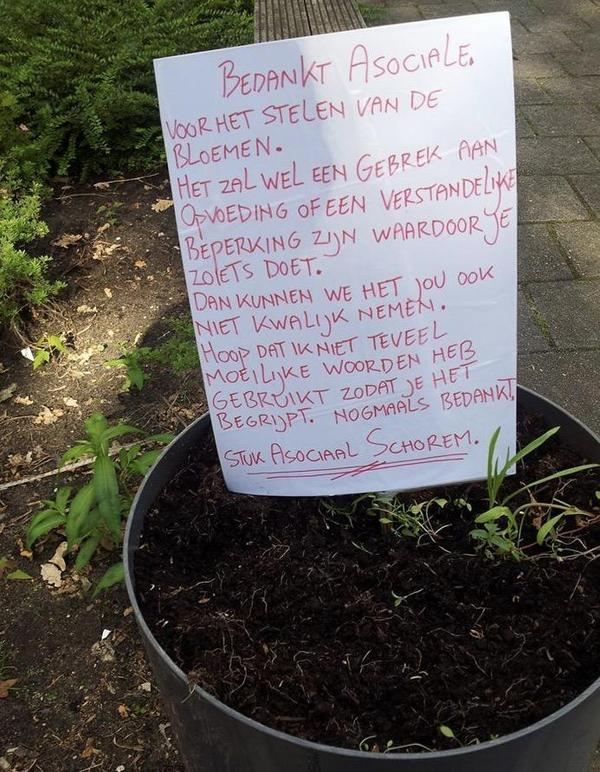 BEDANKT ASOCIALE.
VOOR HET STELEN VAN DE
BLOEMEN.
HET ZAL WEL EEN GEBREK AAN
OPVOEDING OF EEN VERSTANDELIJKE
BEPERKING ZIJN WAARDOOR JE
ZOIETS DOET.
DAN KUNNEN WE HET JOU OOK
NIET KWALIJK NEMEN.
HOOP DAT IK NIET TEVEEL
MOEILIJKE WOORDEN HEB
GEBRUIKT ZODAT JE HET
BEGRIJPT. NOGMAALS BEDANKT,
STUK ASOCIAAL SCHOREM.